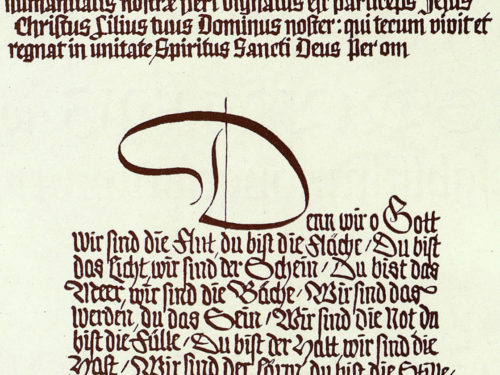 humanitatis nostræ fieri dignatus est particeps Jesus
Christus Filius tuus Dominus noster: qui tecum vivit et
regnat in unitate Spiritus Sancti Deus Per om
Denn wir o Gott
wir sind die Flut, du bist die Fläche / Du bist
das Licht, wir sind der Schein / Du bist das
Meer, wir sind die Bäche / Wir sind das
werden, du das Sein / Wir sind die Not du
bist die Fülle / Du bist der Halt wir sind die
Hast / Wir sind der Lärm, du bist die Stille /